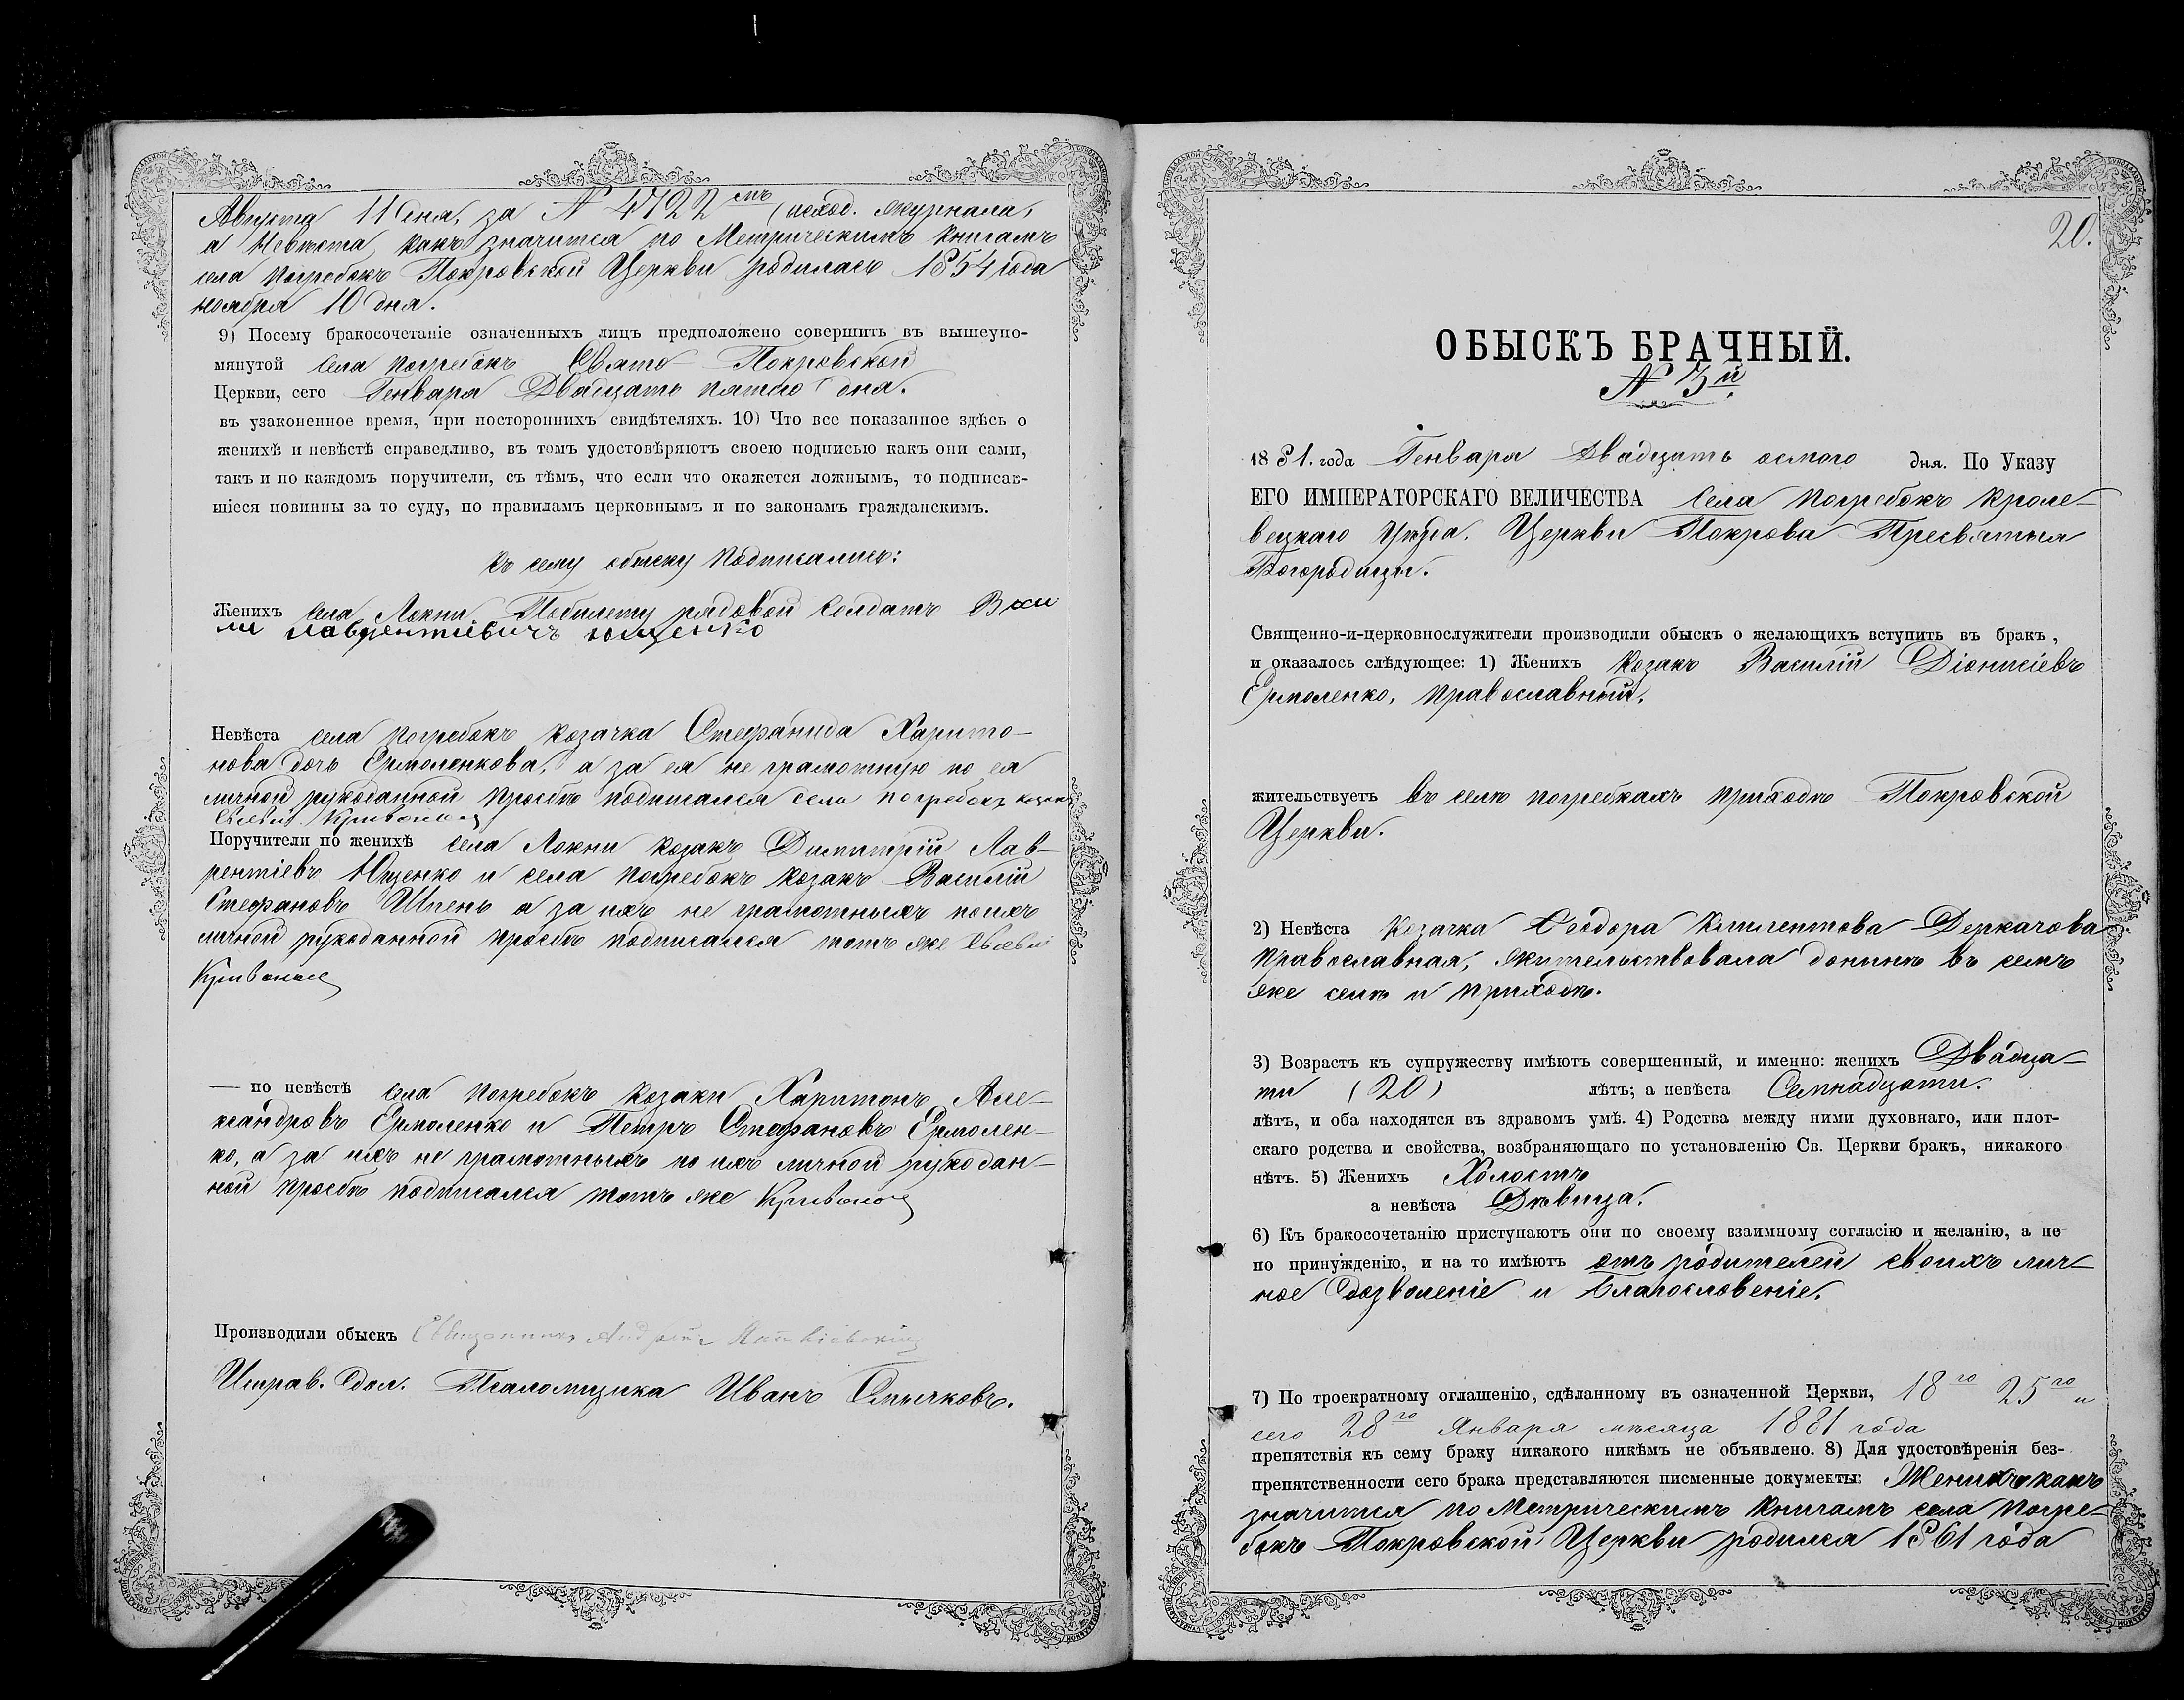 Августа 11 дня, за № 4722 мъ (исход. журнала,
а Невѣста, какъ значится по Метрическимъ книгамъ
села Погребокъ Покровской Церкви родилась 1854 года
ноября 10 дня.
9) Посему бракосочетаніе означенныхъ лицъ предположено совершить въ вышеупо-
мянутой села Погребокъ Свято Покровской
Церкви, сего Генваря Двадцать пятаго дня.
въ узаконенное время, при постороннихъ свидѣтеляхъ. 10) Что все показанное здѣсь о
женихѣ и невѣстѣ справедливо, въ томъ удостовѣряютъ своею подписью какъ они сами,
такъ и по каждомъ поручители, съ тѣмъ, что если что окажется ложнымъ, то подписав-
шіеся повинны за то суду, по правиламъ церковнымъ и по законамъ гражданскимъ.
Къ сему обыску подписались:
Женихъ села Локни Побилету рядовой Солдатъ Васи
ли лаврентіевичъ ющенко
Невѣста села Погребокъ козачка Стефанида Харито-
нова дочь Ермоленкова, а за ея не грамотную по ея
личной рукоданной прозбѣ подписался села погребокъ козакъ
Поручители по женихѣ села Локни козакъ Димитрій Лав-
рентіевъ Ющенко и села Погребокъ козакъ Василій
Стефановъ Шпень а за ихъ не грамотныхъ по ихъ
личной рукоданной прозбѣ подписался тотъ же
— по невѣстѣ села Погребокъ козаки Харитонъ Але-
ксандровъ Ермоленко и Петръ Стефановъ Ермолен-
ко, а за ихъ не грамотныхъ по ихъ личной рукодан-
ной прозбѣ подписался тотъ же
Производили обыскъ Священникъ Андрей
Исправ. дол. Псаломщика Иванъ
20.
ОБЫСКЪ БРАЧНЫЙ.
№ 3й.
18 81. года Генваря Двадцать осмого дня. По Указу
ЕГО ИМПЕРАТОРСКАГО ВЕЛИЧЕСТВА Села Погребокъ Кроле-
вецкаго Уѣзда. Церкви Покрова Пресвятыя
Богородицы.
Священно-и-церковнослужители производили обыскъ о желающихъ вступить въ бракъ,
и оказалось слѣдующее: 1) Женихъ Козакъ Василій Діонисіевъ
Ермоленко, православный,
жительствуетъ въ селѣ погребкахъ приходѣ Покровской
Церкви.
2) Невѣста Козачка Ѳеодора Климентова Деркачова
православная, жительствовала донынѣ въ семъ
же селѣ и приходѣ.
3) Возрастъ къ супружеству имѣютъ совершенный, и именно: женихъ Двадца-
ти (20) лѣтъ; а невѣста Семнадцати.
лѣтъ, и оба находятся въ здравомъ умѣ. 4) Родства между ними духовнаго, или плот-
скаго родства и свойства, возбраняющаго по установленію Св. Церкви бракъ, никакого
нѣтъ. 5) Женихъ Холостъ
а невѣста Дѣвица.
6) Къ бракосочетанію приступаютъ они по своему взаимному согласію и желанію, а не
по принужденію, и на то имѣютъ отъ родителей своихъ лич-
ное дозволеніе и благословеніе.
7) По троекратному оглашенію, сдѣланному въ означенной Церкви, 18го 25го и
сего 28го Января мѣсяца 1881 года
препятствія къ сему браку никакого никѣмъ не объявлено. 8) Для удостовѣренія без-
препятственности сего брака представляются писменные документы: Женихъ какъ
значится по Метрическимъ книгамъ села Погре-
бокъ Покровской Церкви родился 1861 года